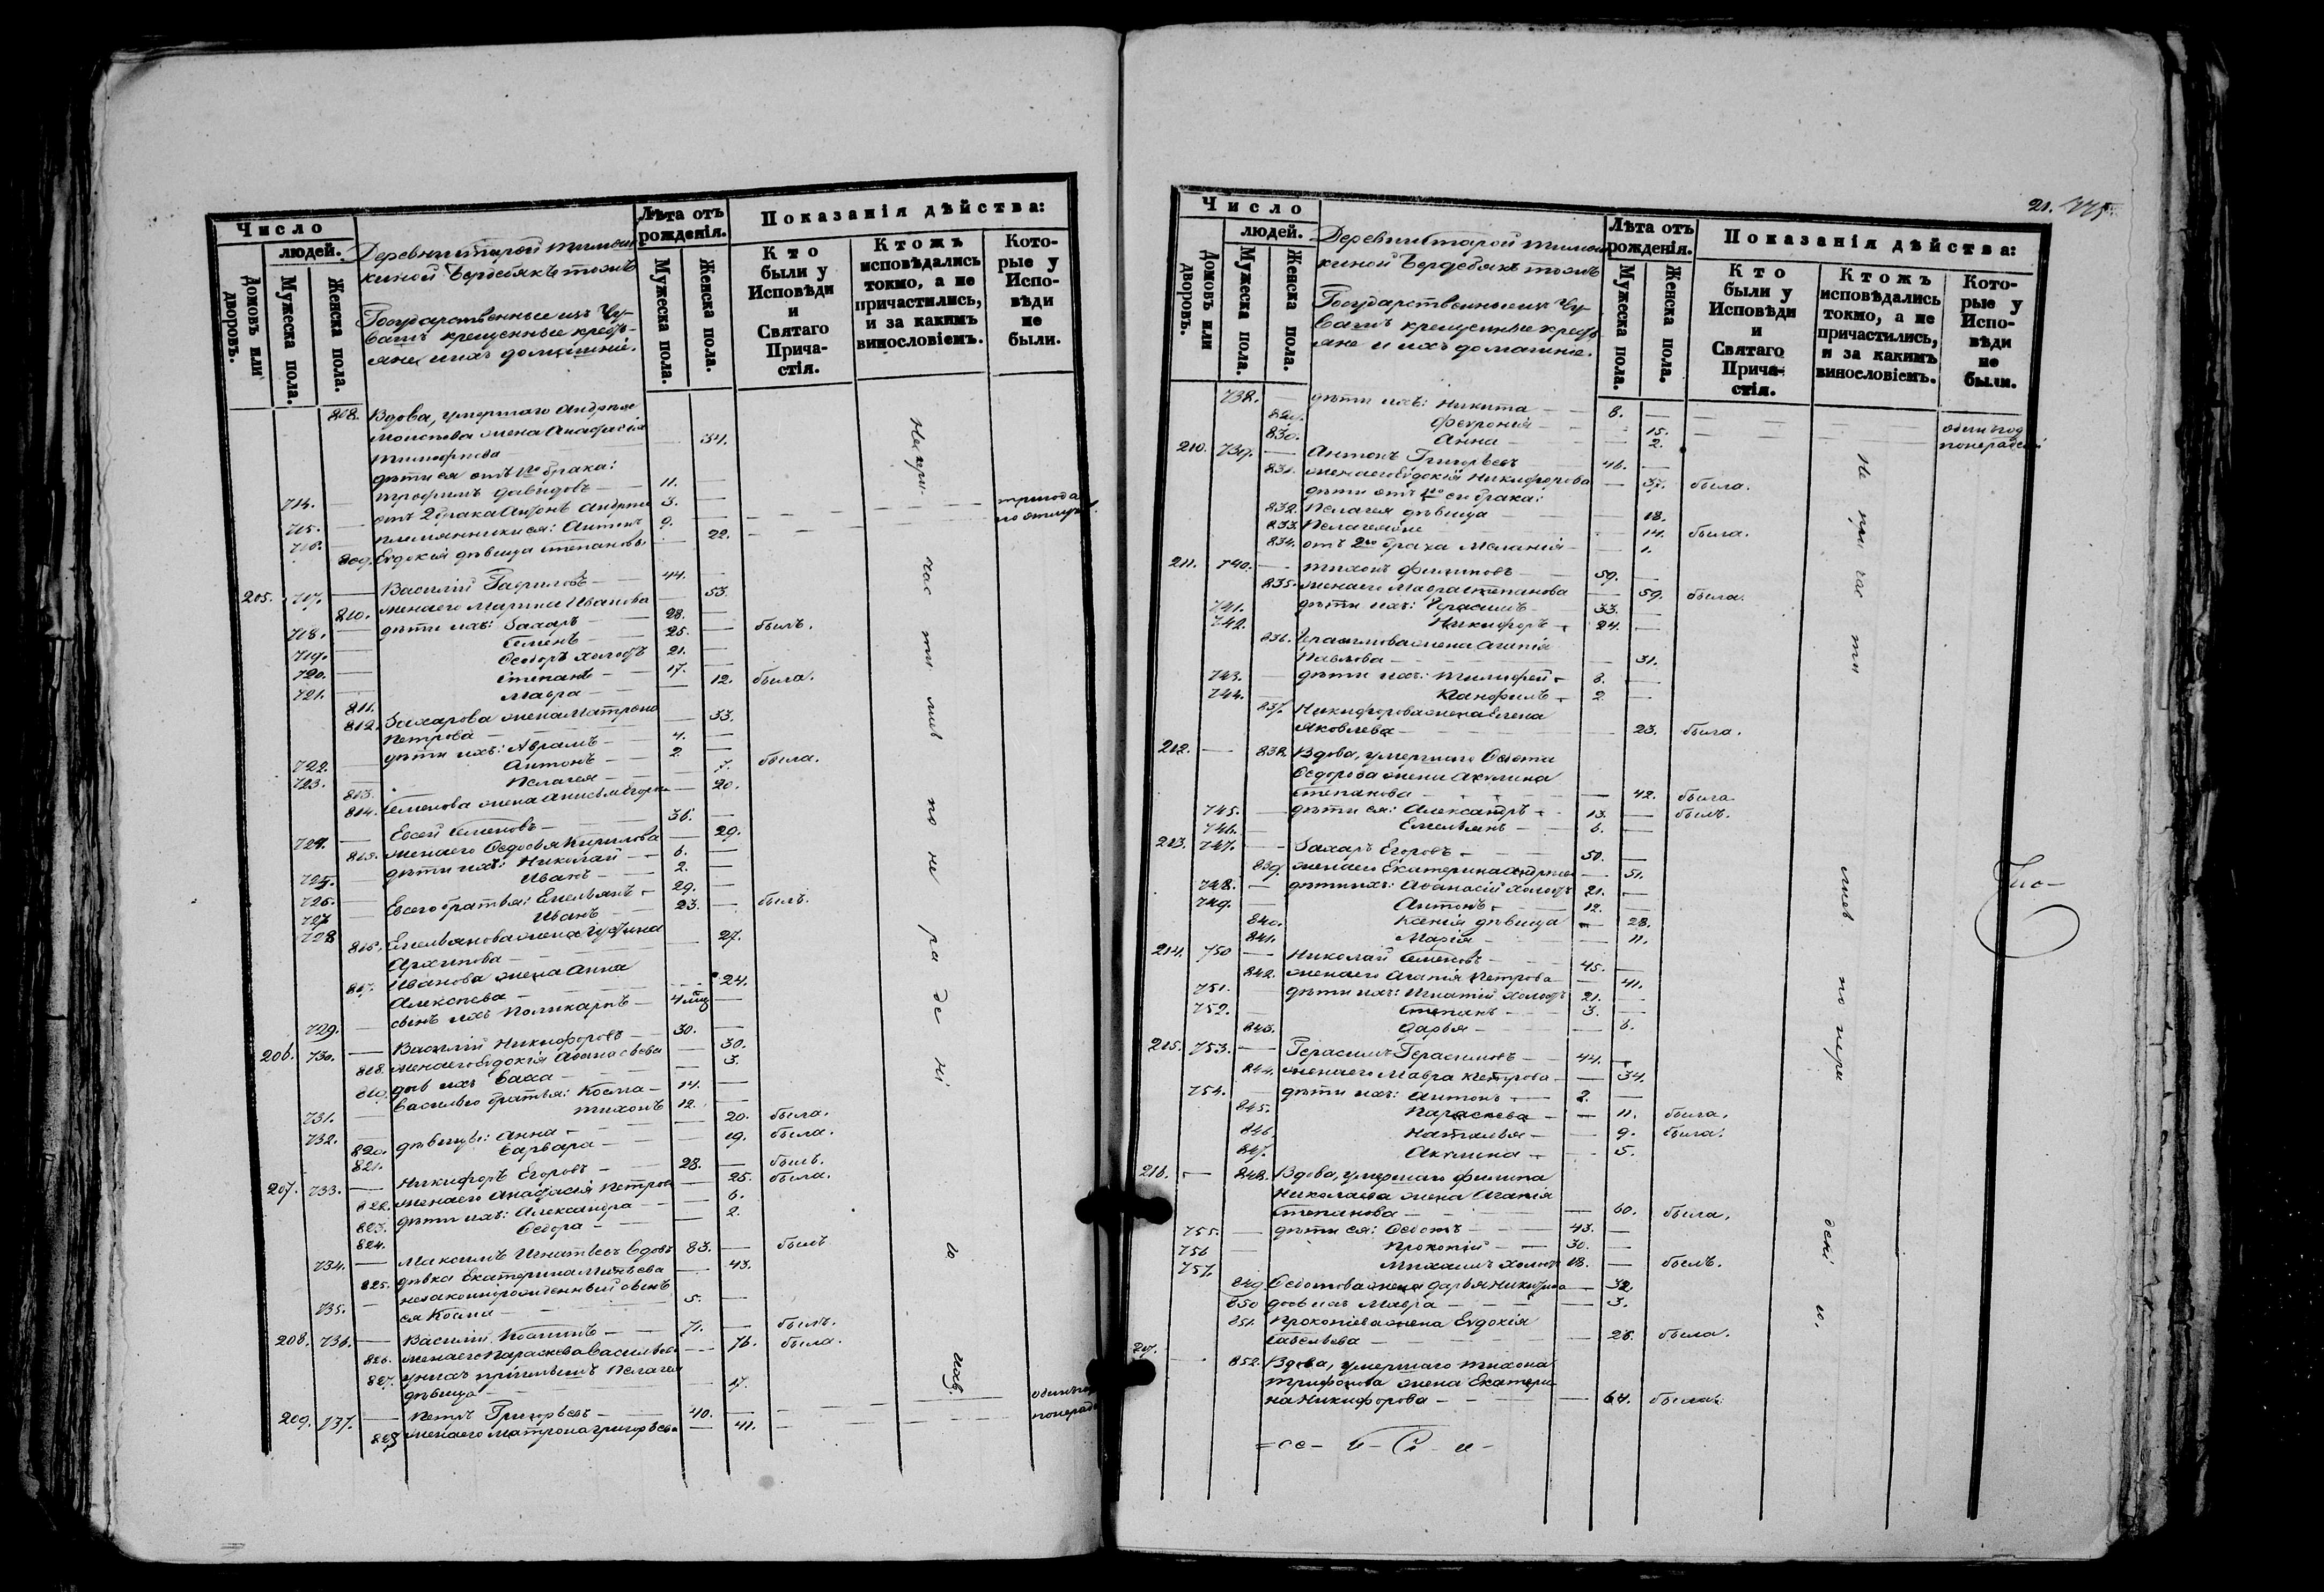 Число
людей.
Домовъ или дворовъ.
Мужеска пола.
Женска пола.
Деревни Старой Тимош-
киной Бердебякъ тожъ
Государственные изъ Чу-
вашъ крещенные кресть-
яне и ихъ домашніе.
Лѣта отъ рожденія.
Мужеска пола.
Женска пола.
Показанія дѣйства:
Кто были у Исповѣди и Святаго Прича-стія.
Ктожъ исповѣдались токмо, а не причастились, и за какимъ винословіемъ.
Кото-рые у Испо-вѣди не были.
808. Вдова, умершаго Андрея
Моисеева жена Анафасія
Тимофеева — 34.
дѣти ея отъ 1го брака:
714. — Трофимъ Давыдовъ — 11. —
715. — отъ 2 брака Антонъ Андреевъ 3. —
716. — племянники ея: Антонъ 9. —
809. Евдокія дѣвица Степанова — 22.
205. 717. — Василій Гавриловъ — 44. —
810. жена его Марина Иванова — 53.
718. — дѣти ихъ: Захаръ — 28. —
719. — Семенъ — 25. — былъ.
720. — Ѳеодоръ холостъ 21. —
721. — Степанъ — 17. —
811. Мавра — 12. была.
812. Захарова жена Матрона
Петрова — 33.
722. — дѣти ихъ: Абрамъ — 4. —
723. — Антонъ — 2 —
813. Пелагея — 7. была.
814. Семенова жена Анисья Егорова — 20.
724. — Евсей Семеновъ — 36. —
815. жена его Ѳедосья Кирилова — 29.
725. — дѣти ихъ: Николай — 6. —
726. — Иванъ — 2. —
727 — Евсего братья: Емельянъ — 29. —
728 — Иванъ — 23. — былъ.
816. Емельянова жена Устина
Архипова — 27.
817. Иванова жена Анна
Алексеева — 24.
729. — сынъ ихъ Поликарпъ — 4 мѣц —
206. 730. — Василій Никифоровъ — 30. —
818. жена его Евдокія Аѳанасьева — 30.
819. дочь ихъ Васса — 3.
731. — Васильего братья: Косма — 14. —
732. — Тихонъ 12. —
820. дѣвицы: Анна — 20. была.
821. Варвара — 19. была.
207. 733. — Никифоръ Егоровъ — 28. — былъ.
822. жена его Анафасія Петрова — 25. была.
823. дѣти ихъ: Александра — 6.
824. Ѳеодора — 2.
734. — Максимъ Игнатьевъ вдовъ 83. — былъ
825. дѣвка Екатерина Минѣева — 43.
735. — незаконнорожденный сынъ
ея Косма — 5. —
208. 736. — Василій Козминъ — 71. — былъ.
826. жена его Параскева Васильева — 76. была.
827. у нихъ пріемышъ Пелагея
дѣвица — 17.
209. 737. — Петръ Григорьевъ — 40. —
828 жена его Матрона Григорьева — 41.
три года
Не при час ти лись по не ра де ні ю ихъ.
одинъ годъ
по нерад
21.
Число
людей.
Домовъ или дворовъ.
Мужеска пола.
Женска пола.
Деревни Старой Тимош-
киной Бердебякъ тожъ
Государственные изъ Чу-
вашъ крещенные кресть-
яне и ихъ домашніе.
Лѣта отъ рожденія.
Мужеска пола.
Женска пола.
Показанія дѣйства:
Кто были у Исповѣди и Святаго Прича-стія.
Ктожъ исповѣдались токмо, а не причастились, и за какимъ винословіемъ.
Кото-рые у Испо-вѣди не были.
738. — дѣти ихъ: Никита — 8. —
829. Февронія — 15.
830. Анна — 2.
одинъ год
по нерадені
210. 739. — Антонъ Григорьевъ 46. —
831. жена его Евдокія Никифорова — 37. была.
дѣти отъ 1го ея брака:
832. Пелагея дѣвица — 18.
833. Пелагея же — 14. была.
834. отъ 2го брака Меланія — 1.
211. 740. — Тихонъ Филиповъ — 59. —
835. жена его Мавра Степанова — 59. была.
741. дѣти ихъ: Герасимъ — 33. —
742. Никифоръ — 24. —
836. Герасимова жена Агапія
Павлова — 31.
743. — дѣти ихъ: Тимофей — 8. —
744. — Панфилъ — 2 —
837. Никифорова жена Елена
Яковлева — 23. была.
212. — 838. Вдова, умершаго Ѳеоѳта
Ѳедорова жена Акулина
Степанова — 42. была
745. — дѣти ея: Александръ — 13. — былъ.
746. — Емельянъ — 6. —
213. 747. — Захаръ Егоровъ — 50. —
839. жена его Екатерина Андреева — 51.
748. — дѣти ихъ: Аѳанасій холостъ 21. —
749. — Антонъ — 12. —
840. Ксенія дѣвица — 28.
841. Марія — 11.
214. 750 — Николай Семеновъ — 45. —
842. жена его Агапія Петрова — 41.
751. дѣти ихъ: Игнатій холостъ 21. —
752. Степанъ — 3. —
843. Дарья — 6.
215. 753. — Герасимъ Герасимовъ — 44. —
844. жена его Мавра Петрова — 34.
754. — дѣти ихъ: Антонъ — 2. —
845. Параскева — 11. была.
846. Наталья — 9. была.
847. Акулина — 5.
216. — 848. Вдова, умершаго Филипа
Николаева жена Агапія
Степанова — 60. была.
755. — дѣти ея: Ѳедотъ — 43. —
756 — Прокопій — 30. —
757. Михаилъ холостъ 18. — былъ.
849. Ѳедотова жена Дарья Никитина — 32.
850 дочь ихъ Мавра — 3.
851. Прокопіева жена Евдокія
Савельева — 28. была.
217. — 852. Вдова, умершаго Тихона
Трифонова жена Екатери-
на Никифорова — 64. была.
Не при час ти лись по нера дені ю.